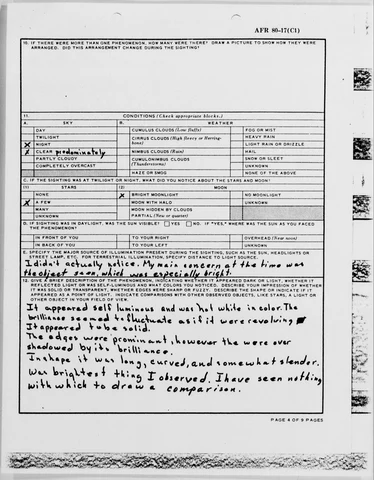 AFR 80-17(C1)
10. IF THERE WERE MORE THAN ONE PHENOMENON, HOW MANY WERE THERE? DRAW A PICTURE TO SHOW HOW THEY WERE
ARRANGED. DID THIS ARRANGEMENT CHANGE DURING THE SIGHTING?
11. CONDITIONS (Check appropriate blocks.)
A. SKY B. WEATHER
DAY CUMULUS CLOUDS (Low fluffy) FOG OR MIST
TWILIGHT CIRRUS CLOUDS (High fleecy or Herring- HEAVY RAIN
X NIGHT bone) LIGHT RAIN OR DRIZZLE
X CLEAR predominately NIMBUS CLOUDS (Rain) HAIL
PARTLY CLOUDY CUMULONIMBUS CLOUDS SNOW OR SLEET
COMPLETELY OVERCAST (Thunderstorms) UNKNOWN
HAZE OR SMOG NONE OF THE ABOVE
C. IF THE SIGHTING WAS AT TWILIGHT OR NIGHT, WHAT DID YOU NOTICE ABOUT THE STARS AND MOON?
(1) STARS (2) MOON
NONE X BRIGHT MOONLIGHT NO MOONLIGHT
X A FEW MOON WITH HALO UNKNOWN
MANY MOON HIDDEN BY CLOUDS
UNKNOWN PARTIAL (New or quarter)
D. IF SIGHTING WAS IN DAYLIGHT, WAS THE SUN VISIBLE? YES NO. IF "YES," WHERE WAS THE SUN AS YOU FACED
THE PHENOMENON?
IN FRONT OF YOU TO YOUR RIGHT OVERHEAD (Near noon)
IN BACK OF YOU TO YOUR LEFT UNKNOWN
E. SPECIFY THE MAJOR SOURCE OF ILLUMINATION PRESENT DURING THE SIGHTING, SUCH AS THE SUN, HEADLIGHTS OR
STREET LAMP, ETC. FOR TERRESTRIAL ILLUMINATION, SPECIFY DISTANCE TO LIGHT SOURCE.
I didn't actually notice. My main concern at the time was
the object seen, which was especially bright.
12. GIVE A BRIEF DESCRIPTION OF THE PHENOMENON, INDICATING WHETHER IT APPEARED DARK OR LIGHT, WHETHER IT
REFLECTED LIGHT OR WAS SELF-LUMINOUS AND WHAT COLORS YOU NOTICED. DESCRIBE YOUR IMPRESSION OF WHETHER
IT WAS SOLID OR TRANSPARENT, WHETHER EDGES WERE SHARP OR FUZZY. DESCRIBE THE SHAPE OR INDICATE IF IT
APPEARED AS A POINT OF LIGHT. INDICATE COMPARISONS WITH OTHER OBSERVED OBJECTS, LIKE STARS, A LIGHT OR
OTHER OBJECT IN YOUR FIELD OF VIEW.
It appeared self luminous and was hal white in color. The
brilliance seemed to fluctuate as if it were revolving
It appeared to be solid.
The edges were prominant, however the were over
shadowed by its brilliance.
In shape it was long, curved, and somewhat slender.
Was brightest thing I observed. I have seen nothing
with which to draw a comparison.
PAGE 4 OF 9 PAGES